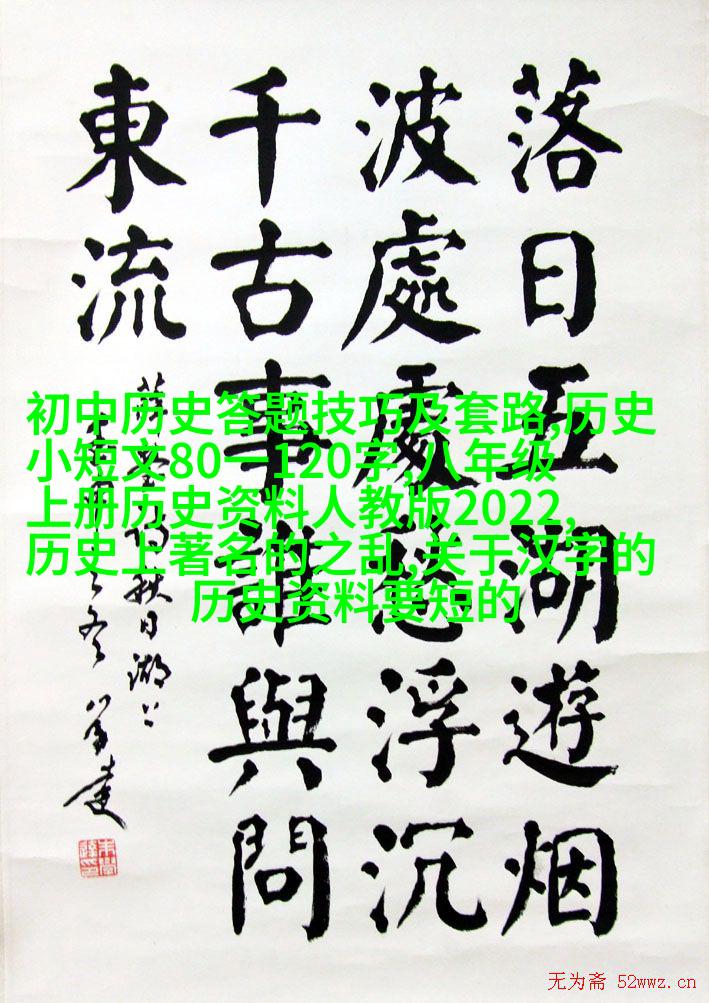 落日五湖遊烟
波處處愁浮沉
千古事誰與問
東流
薛瑩 秋日湖上
初中历史答题技巧及套路,历史
小短文80一120字,八年级
上册历史资料人教版2022,
历史上著名的之乱,关于汉字的
历史资料要短的
无为斋 52wwz.cn